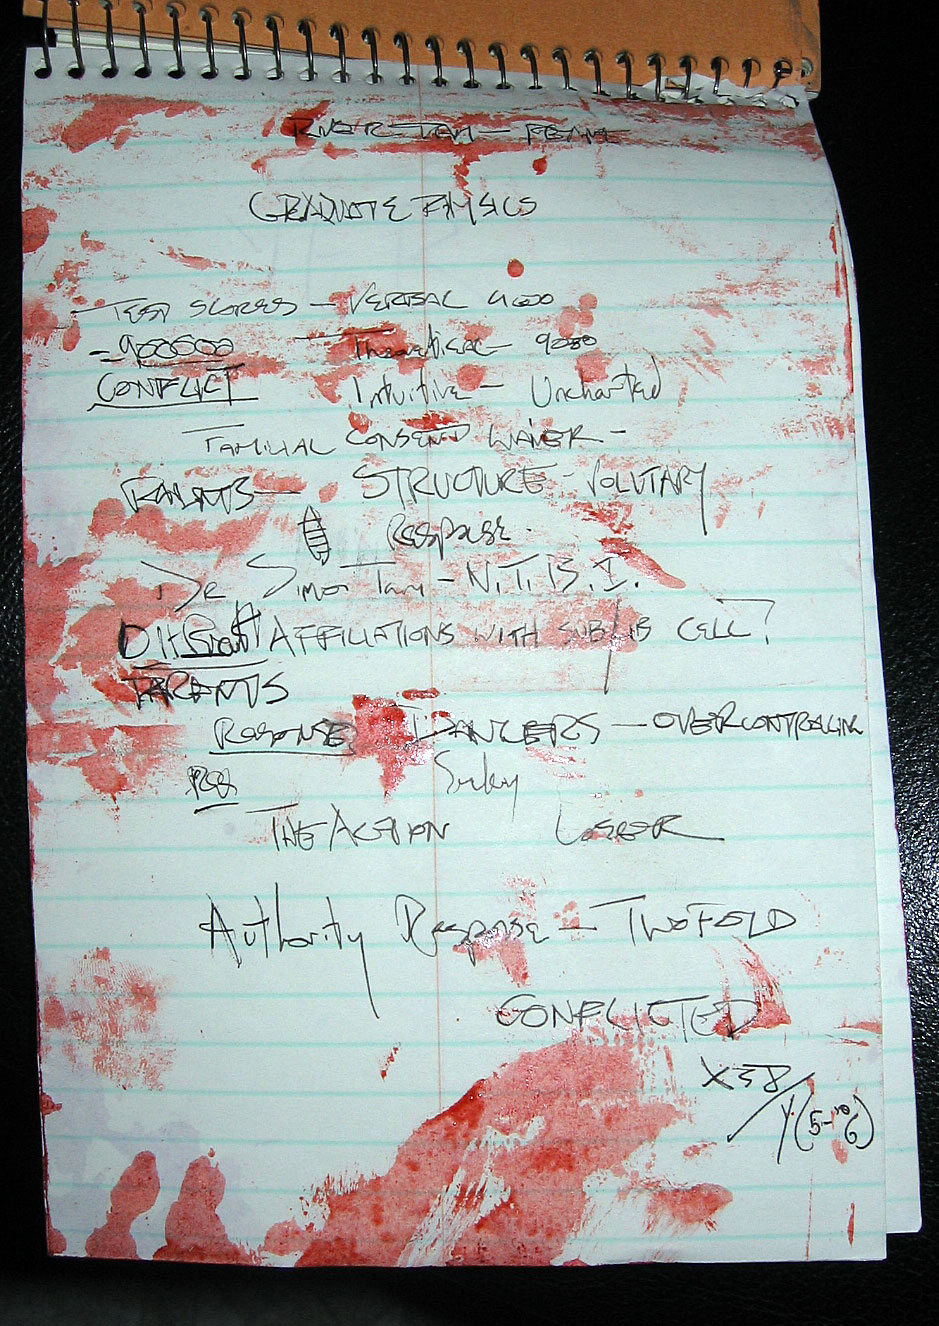 RIVER TAM -
GRADUATE PHYSICS
TEST SCORES - VERBAL 4000
900500 Theoretical - 9080
CONFLICT Intuitive - Uncharted
FAMILIAL CONSENT WAIVER -
PARENTS - STRUCTURE - VOLUTARY
Response.
Dr Simon Tam - N.T.B.I.
AFFILIATIONS WITH SUB LIB CELL?
PARENTS
RESPONSE DANCERS - OVERCONTROLING
THE ACTION LOSEER
Authority Response - TWOFOLD
CONFLICTED
X38/Y(5-10 6)